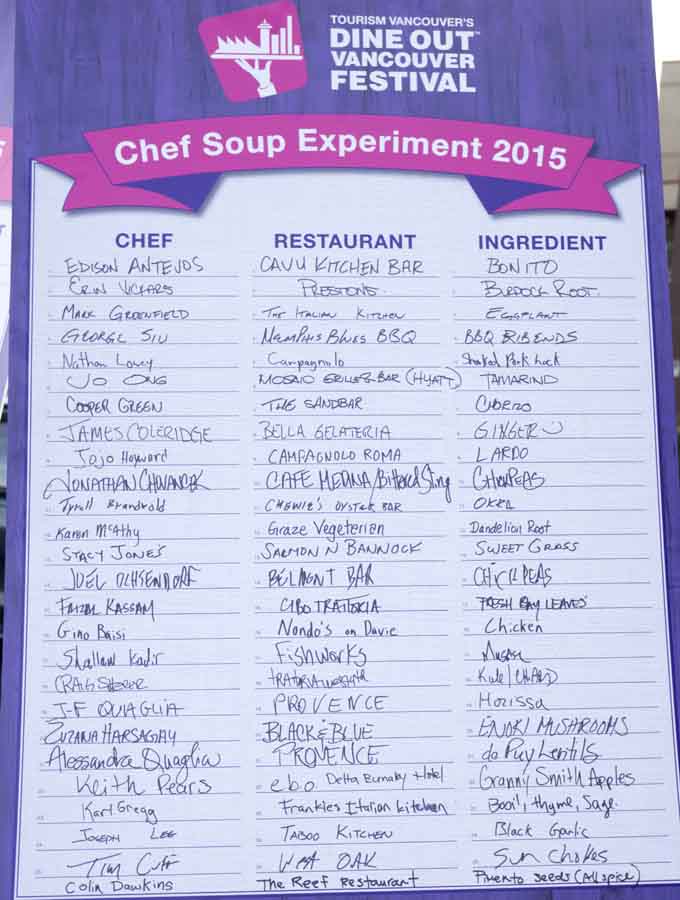 TOURISM VANCOUVER'S
DINE OUT™
VANCOUVER
FESTIVAL
Chef Soup Experiment 2015
CHEF RESTAURANT INGREDIENT
EDISON ANTEJOS CAVU KITCHEN BAR BONITO
ERIN VICKARS PRESTONS BURDOCK ROOT.
MARK GREENFIELD THE ITALIAN KITCHEN EGGPLANT
GEORGE SIU MEMPHIS BLUES BBQ BBQ RIB ENDS
Nathan Lowey Campagnolo Smoked Pork hock
JO ONG MOSAIC GRILLE & BAR (HYATT) TAMARIND
COOPER GREEN THE SANDBAR CHORIZO
JAMES COLERIDGE BELLA GELATERIA GINGER
Jojo Hayward CAMPAGNOLO ROMA LARDO
JONATHAN CHOVANCEK CAFE MEDINA/Bittered Sling CHICKPEAS
Tyroll Brandvold CHEWIE'S OYSTER BAR OKRA
Karen McAthy Graze Vegeterian Dandelion Root
STACY JONES SALMON N BANNOCK SWEET GRASS
JOEL OCHSENDORF BELMONT BAR CHICKPEAS
FAIZAL KASSAM CIBO TRATTORIA FRESH BAY LEAVES
Gino Baisi Nando's on Davie Chicken
Shallaw Kadir Fishworks
CRAIG TRATTORIA Kale/CHARD
J-F QUAGLIA PROVENCE Harissa
ZUZANA HARSAGHY BLACK & BLUE ENOKI MUSHROOMS
Alessandra Quaglia PROVENCE du Puy Lentils
Keith Pears ebo Delta Burnaby Hotel Granny Smith Apples
Karl Gregg Frankies Italian kitchen Basil, thyme, Sage.
JOSEPH LEE TABOO KITCHEN Black Garlic
Tim Cuff WEST OAK Sun Chokes
Colin Dawkins The Reef Restaurant Pimento Seeds (All spice)